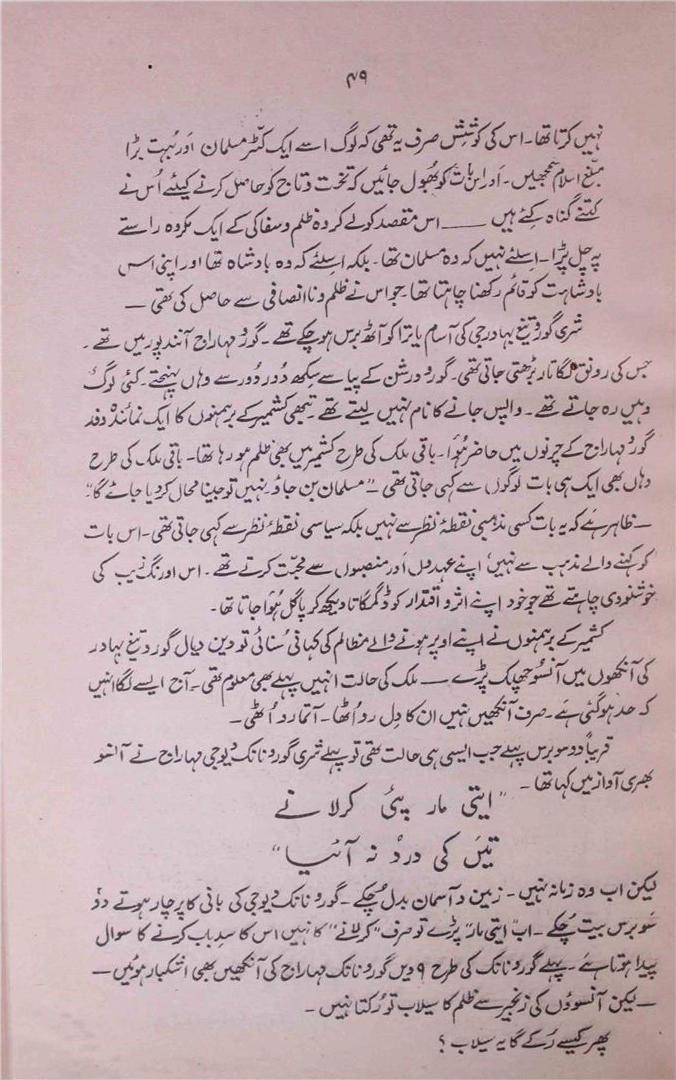 ۴۹
نہیں کرتا تھا۔ اس کی کوشش صرف یہ تھی کہ لوگ اسے ایک کٹر مسلمان اور بہت بڑا
مبلغ اسلام سمجھیں۔ اور اس بات کو بھول جائیں کہ تخت و تاج کو حاصل کرنے کیلئے اُس نے
کتنے گناہ کئے ہیں —— اس مقصد کو لے کر وہ ظلم و سفاکی کے ایک مکروہ راستے
پہ چل پڑا۔ اسلئے نہیں کہ وہ مسلمان تھا۔ بلکہ اسلئے کہ وہ بادشاہ تھا اور اپنی اس
بادشاہت کو قائم رکھنا چاہتا تھا۔ جو اس نے ظلم و ناانصافی سے حاصل کی تھی —
شری گورو تیغ بہادر جی کی آسام یاترا کو آٹھ برس ہو چکے تھے۔ گورو مہاراج آنند پور میں تھے۔
جس کی رونق لگاتار بڑھتی جاتی تھی۔ گورو درشن کے پیاسے سکھ دُور دُور سے وہاں پہنچتے۔ کئی لوگ
وہیں رہ جاتے تھے۔ واپس جانے کا نام نہیں لیتے تھے۔ تبھی کشمیر کے برہمنوں کا ایک نمائندہ وفد
گورو مہاراج کے چرنوں میں حاضر ہُوا۔ باقی ملک کی طرح کشمیر میں بھی ظلم ہو رہا تھا۔ باقی ملک کی طرح
وہاں بھی ایک ہی بات لوگوں سے کہی جاتی تھی "مسلمان بن جاؤ۔ نہیں تو جینا محال کر دیا جائے گا"
— ظاہر ہے کہ یہ بات کسی مذہبی نقطۂ نظر سے نہیں بلکہ سیاسی نقطۂ نظر سے کہی جاتی تھی۔ اس بات
کو کہنے والے مذہب سے نہیں، اپنے عہدوں اور منصبوں سے محبت کرتے تھے۔ اس اورنگ زیب کی
خوشنودی چاہتے تھے جو خود اپنے اثر و اقتدار کو ڈگمگاتا دیکھ کر پاگل ہُوا جاتا تھا۔
کشمیر کے برہمنوں نے اپنے اوپر ہونے والے مظالم کی کہانی سُنائی تو دین دیال گورو تیغ بہادر
کی آنکھوں میں آنسو چھلک پڑے — ملک کی حالت انہیں پہلے بھی معلوم تھی۔ آج ایسے لگا انہیں
کہ حد ہو گئی ہے۔ صرف آنکھیں نہیں ان کا دِل رو اُٹھا۔ آتما رو اُٹھی —
قریباً دو سو برس پہلے جب ایسی ہی حالت تھی تو پہلے شری گورو نانک دیو جی مہاراج نے آنسو
بھری آواز میں کہا تھا۔
"ایتی مار پئی کرلانے
تیَں کی درد نہ آئیا"
لیکن اب وہ زمانہ نہیں۔ زمین و آسمان بدل چکے۔ گورو نانک دیو جی کی بانی کا پرچار ہوتے دو
سو برس بیت چکے۔ اب ایتی مار پڑے تو صرف "کرلانے" کا نہیں اس کا سدِباب کرنے کا سوال
پیدا ہوتا ہے۔ پہلے گورو نانک کی طرح ۹ ویں گورو نانک مہاراج کی آنکھیں بھی اشکبار ہوئیں —
— لیکن آنسوؤں کی زنجیر سے ظلم کا سیلاب تو رُکتا نہیں۔
پھر کیسے رُکے گا یہ سیلاب؟